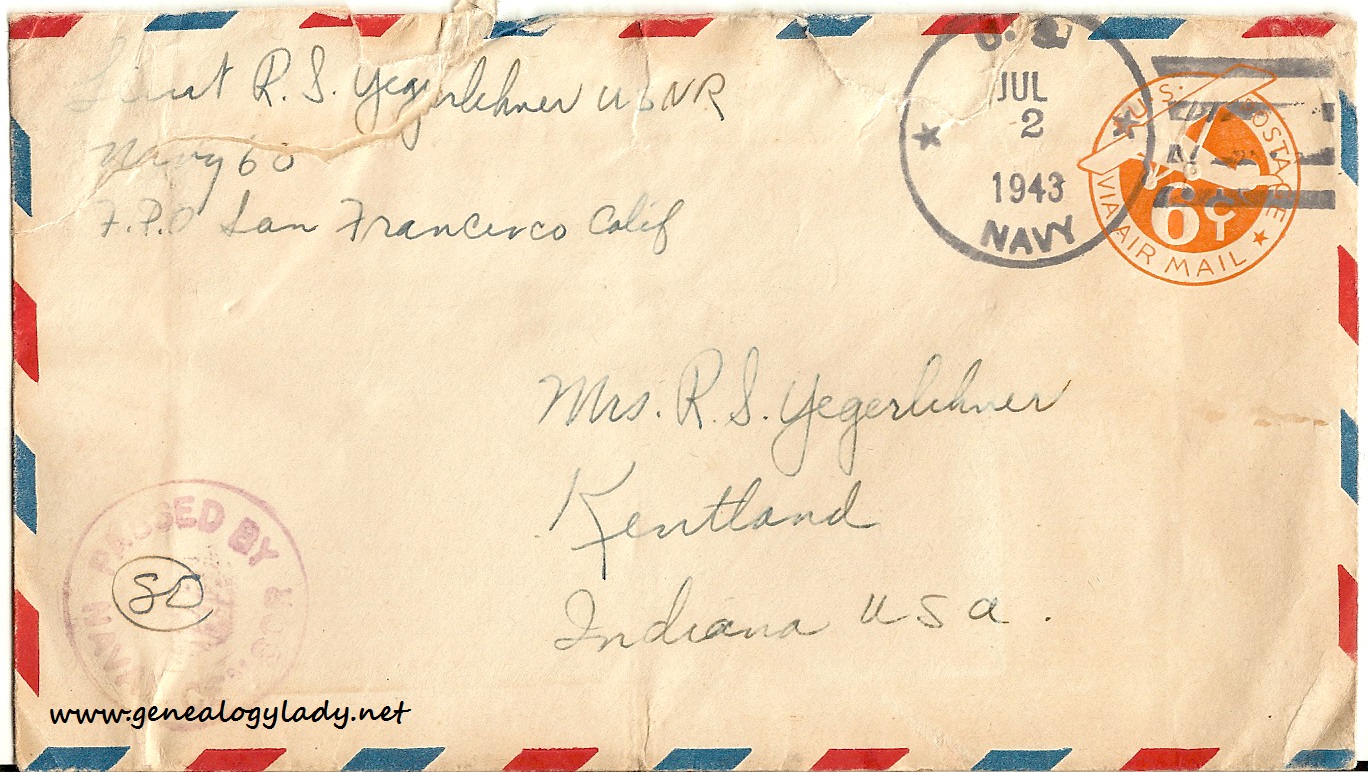 Lieut R. S. Yegerlehner USNR
Navy 60
F.P.O San Francisco Calif
U.S.
JUL
2
1943
NAVY
U.S. POSTAGE
6¢
VIA AIR MAIL
Mrs. R. S. Yegerlehner
Kentland
Indiana USA.
PASSED BY
NAVAL
SD
www.genealogylady.net